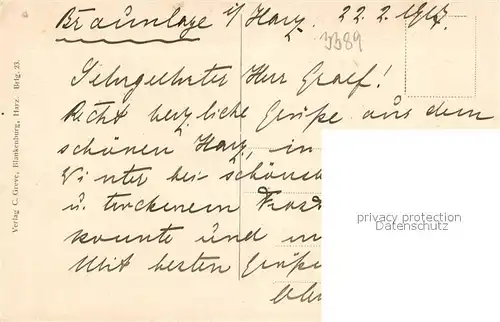 Braunlage i/ Harz. 22. 2.
3389
Sehrgeehrter Herr Graef!
Recht herzliche Grüße aus dem
schönen Harz, in
Winter bei schönem
u. trockenem Frost
konnte und
Mit besten Grüßen
Verlag C. Greve, Blankenburg, Harz. Brlg. 23.
privacy protection
Datenschutz